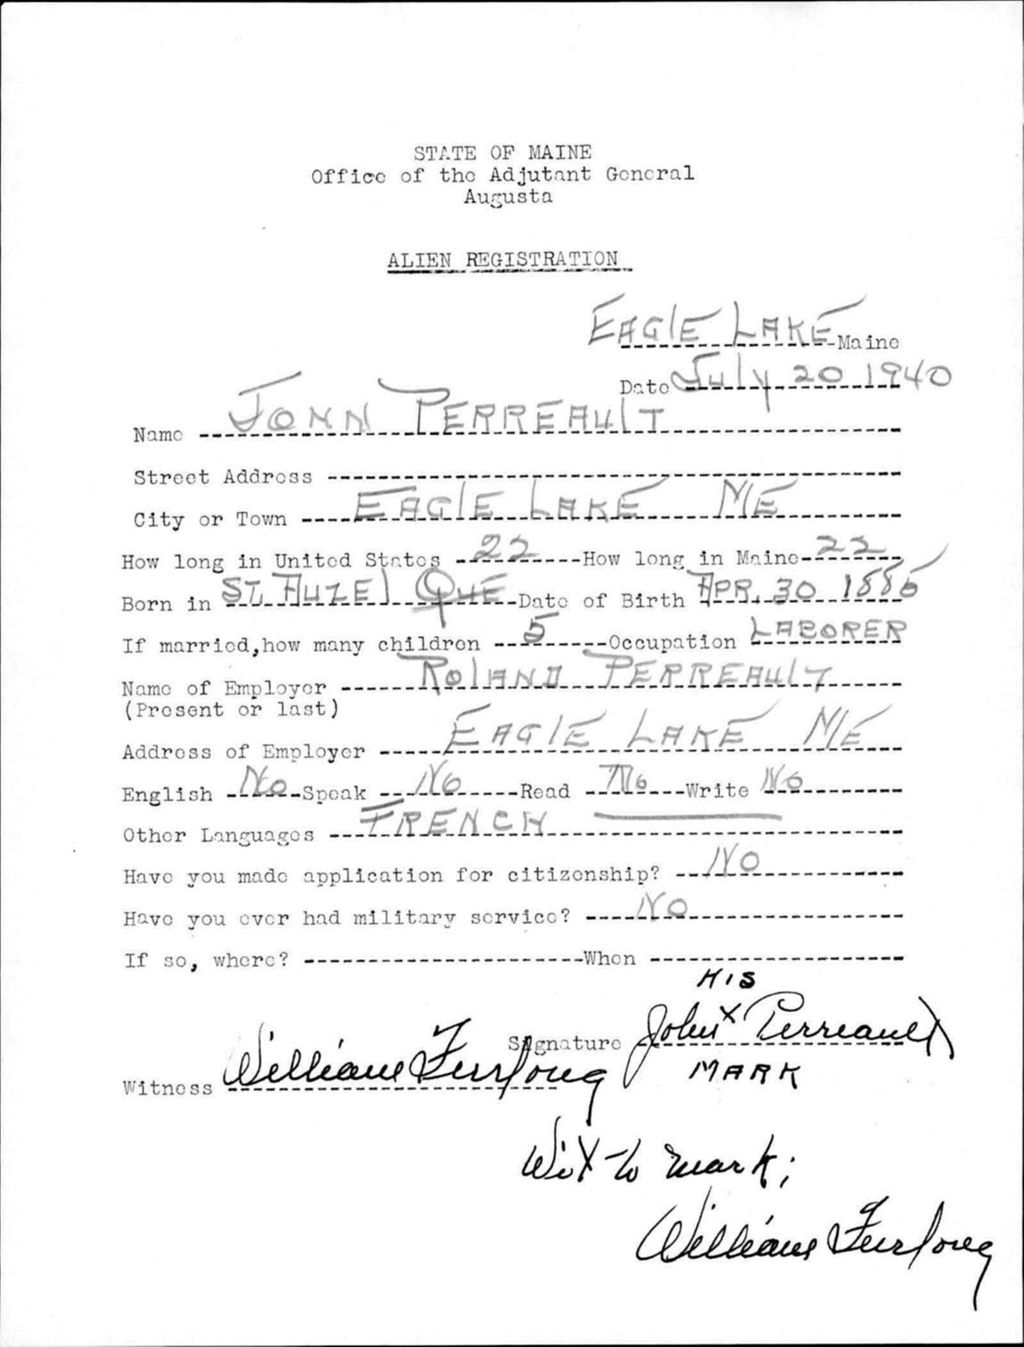 STATE OF MAINE
Office of the Adjutant General
Augusta
ALIEN REGISTRATION
EAGLE LAKE Maine
Date July 20 1940
Name JOHN PERREAULT
Street Address
City or Town EAGLE LAKE ME
How long in United States 22 How long in Maine 22
Born in ST. AUZEL QUE Date of Birth APR. 30 1886
If married, how many children 5 Occupation LABORER
Name of Employer ROLAND PERREAULT
(Present or last)
Address of Employer EAGLE LAKE ME
English No Speak No Read No Write No
Other Languages FRENCH
Have you made application for citizenship? No
Have you ever had military service? No
If so, where? When
HIS
Signature John X Perreault
MARK
Witness William Furlong
Wit to mark;
William Furlong